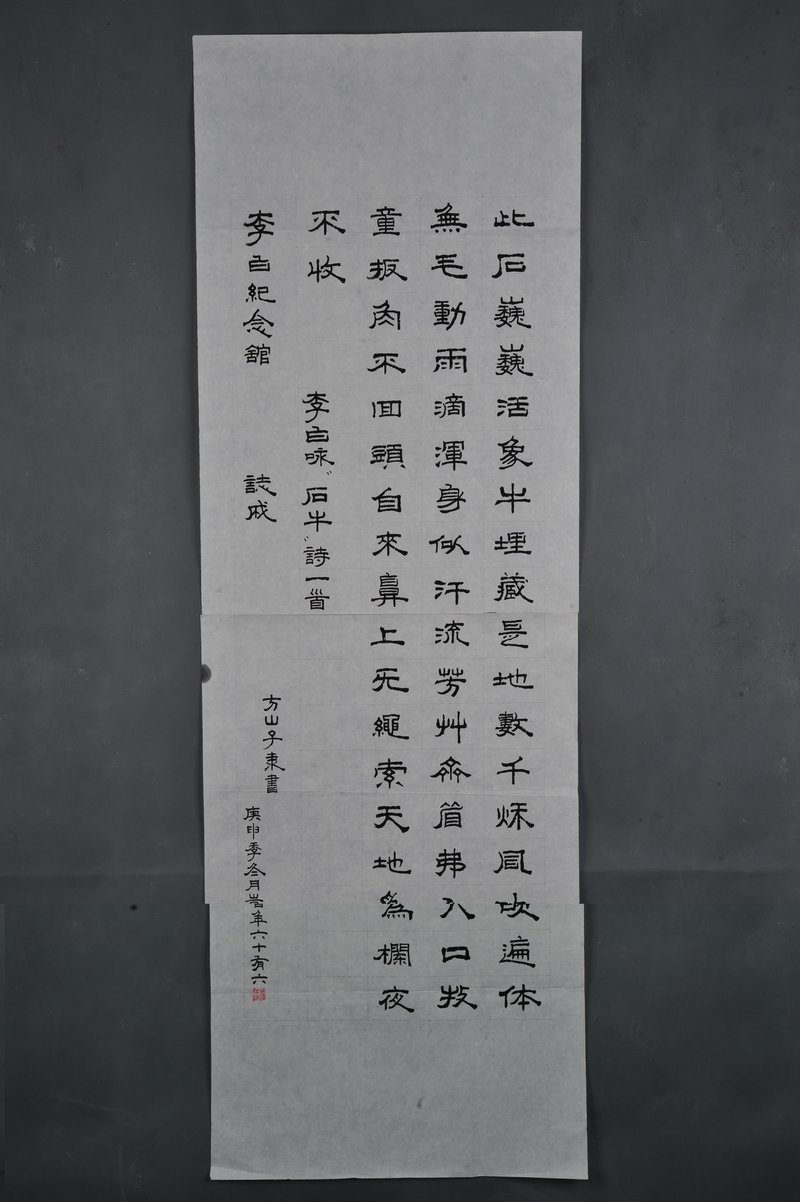 此石巍巍活象牛埋藏是地數千秌風吹遍体
無毛動雨滴渾身似汗流芳艸齊眉弗入口牧
童扳角不回頭自來鼻上无繩索天地為欄夜
不收
李白咏"石牛"詩一首
李白紀念舘
誌成
方山子東書
庚申季冬月時年六十有六